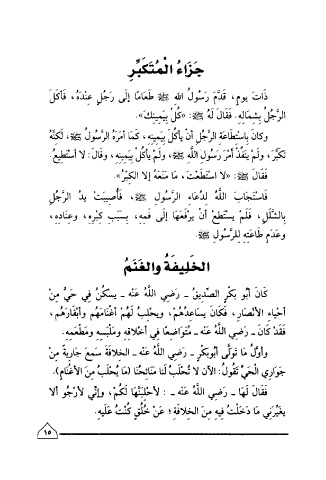 جَزَاءُ الْمُتَكَبِّرِ
ذَاتَ يومٍ، قَدَّمَ رَسُولُ الله ﷺ طَعَامًا إلَى رَجُلٍ عِنْدَهُ، فَأكَلَ
الرَّجُلُ بِشِمَالِهِ. فَقَالَ لَهُ ﷺ: «كُلْ بِيَمِينِكَ».
وكانَ بِاسْتِطَاعَةِ الرَّجُلِ أنْ يأكُلَ بِيَمِينِهِ، كَمَا أمَرَهُ الرَّسُولُ ﷺ، لَكِنَّهُ
تَكَبَّرَ، ولَمْ يُنَفِّذْ أمْرَ رَسُولِ اللَّهِ ﷺ، ولَمْ يأكُلْ بِيَمِينِهِ، وقَالَ: لا أسْتَطِيعُ.
فَقَالَ ﷺ: «لا اسْتَطَعْتَ، مَا مَنَعَهُ إلا الكِبْرُ».
فَاسْتَجَابَ اللَّهُ لِدُعَاءِ الرَّسُولِ ﷺ، فَأُصِيبَتْ يدُ الرَّجُلِ
بِالشَّلَلِ، فَلَمْ يسْتَطِعْ أنْ يرْفَعَهَا إلَى فَمِهِ، بِسَبَبِ كِبْرِهِ، وعِنَادِهِ،
وعَدَمِ طَاعَتِهِ لِلرَّسُولِ ﷺ.
الخَلِيفَةُ والغَنَمُ
كَانَ أبُو بَكْرٍ الصِّدِّيقُ ـ رَضِي اللَّهُ عَنْهُ ـ يسكُنُ فِي حَيٍّ مِنْ
أحْيَاءِ الأنْصَارِ، فَكَانَ يسَاعِدُهُمْ، ويحْلِبُ لَهُمْ أغْنَامَهُمْ وأبْقَارَهُمْ،
فَقَدْ كَانَ ـ رَضِي اللَّهُ عَنْهُ ـ مُتَوَاضِعًا فِي أخْلاقِهِ ومَلْبَسِهِ ومَطْعَمِهِ.
وأوَّلُ مَا تَوَلَّى أبُوبَكْرٍ ـ رَضِي اللَّهُ عَنْهُ ـ الخِلافَةَ سَمِعَ جَارِيةً مِنْ
جَوَارِي الْحَيِّ تَقُولُ: الآنَ لا تُحْلَبُ لَنَا مَنَائِحُنَا (مَا يُحْلَبُ مِنَ الأغْنَامِ).
فَقَالَ لَهَا ـ رَضِي اللَّهُ عَنْهُ ـ: لأحْلِبَنَّهَا لَكُمْ، وإنِّي لأرْجُو ألا
يغَيِّرَنِي مَا دَخَلْتُ فِيهِ مِنَ الخِلافَةِ؛ عَنْ خُلُقٍ كُنْتُ عَلَيهِ.
١٥